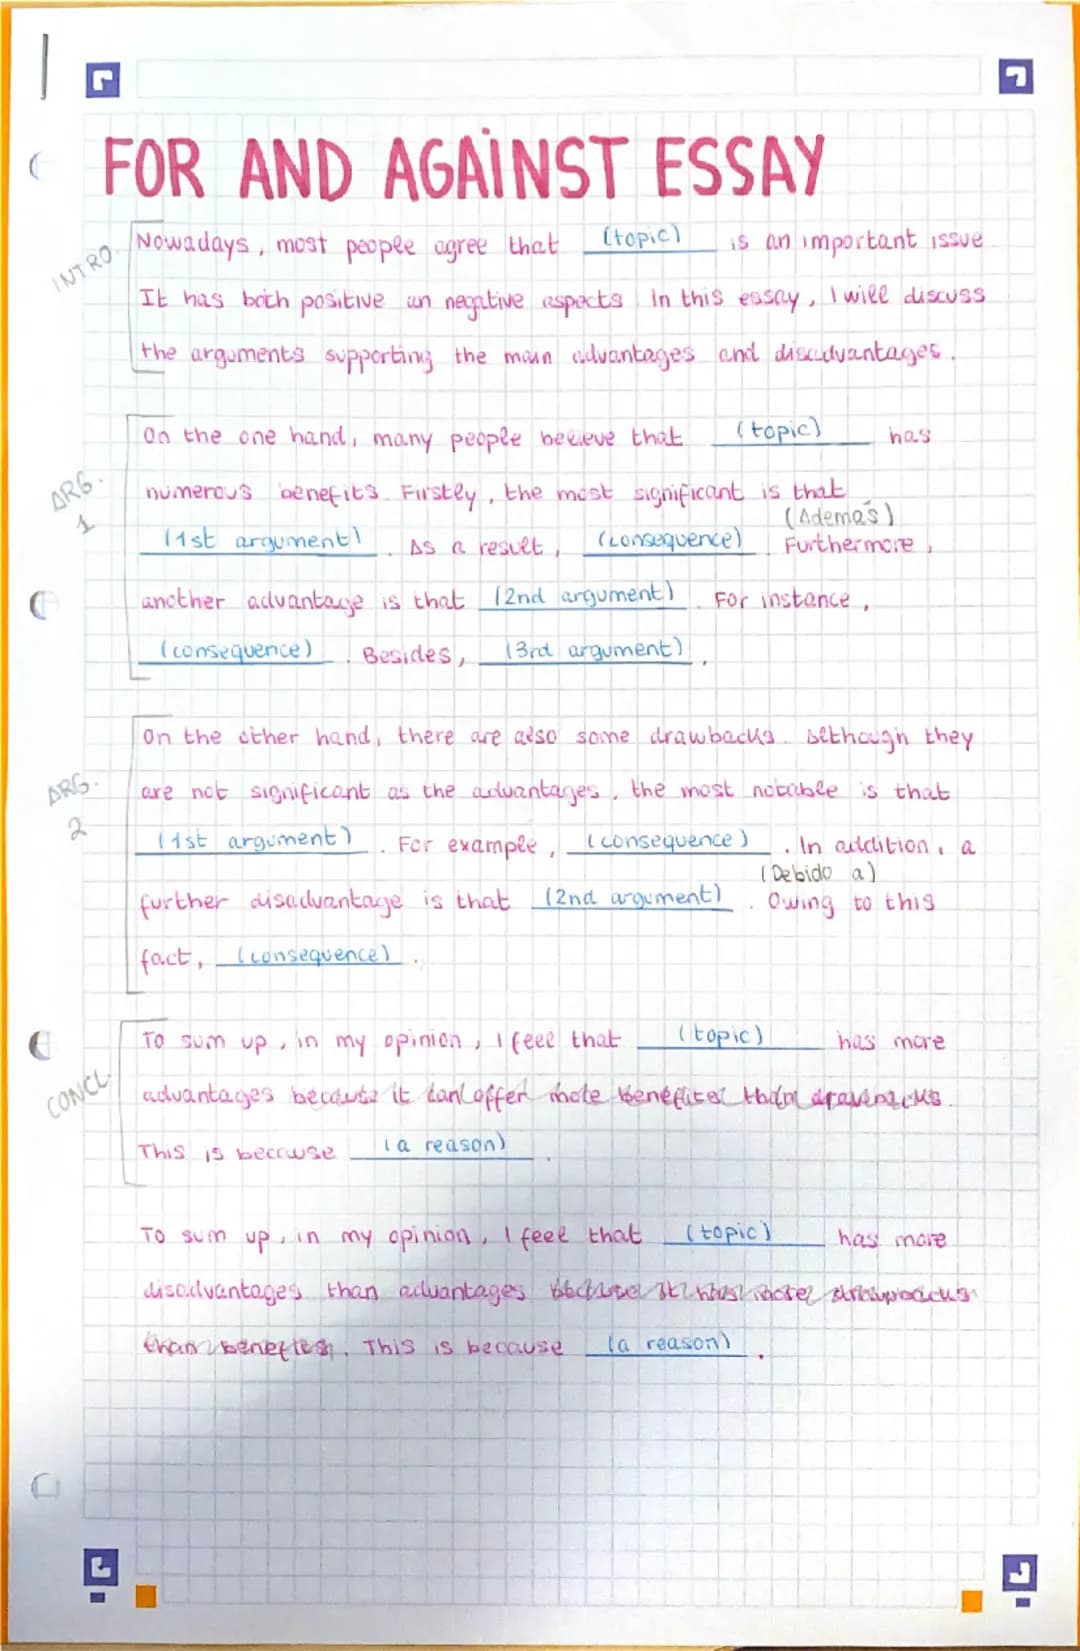 FOR AND AGAINST ESSAY
INTRO.
Nowadays, most people agree that (topic) is an important issue
It has both positive an negative aspects In this essay, I will discuss
the arguments supporting the main advantages and disadvantages.
ARG. 1
On the one hand, many people believe that (topic) has
numerous benefits. Firstly, the most significant is that
(Además)
(1st argument). As a result, (consequence). Furthermore,
another advantage is that (2nd argument). For instance,
(consequence). Besides, (3rd argument).
ARG. 2
On the other hand, there are also some drawbacks. Although they
are not significant as the advantages, the most notable is that
(1st argument). For example, (consequence). In addition, a
(Debido a)
further disadvantage is that (2nd argument). Owing to this
fact, (consequence).
CONCL.
To sum up, in my opinion, I feel that (topic) has more
advantages because it can offer more benefits than drawbacks.
This is because (a reason).
To sum up, in my opinion, I feel that (topic) has more
disadvantages than advantages because it has more drawbacks
than benefits. This is because (a reason).